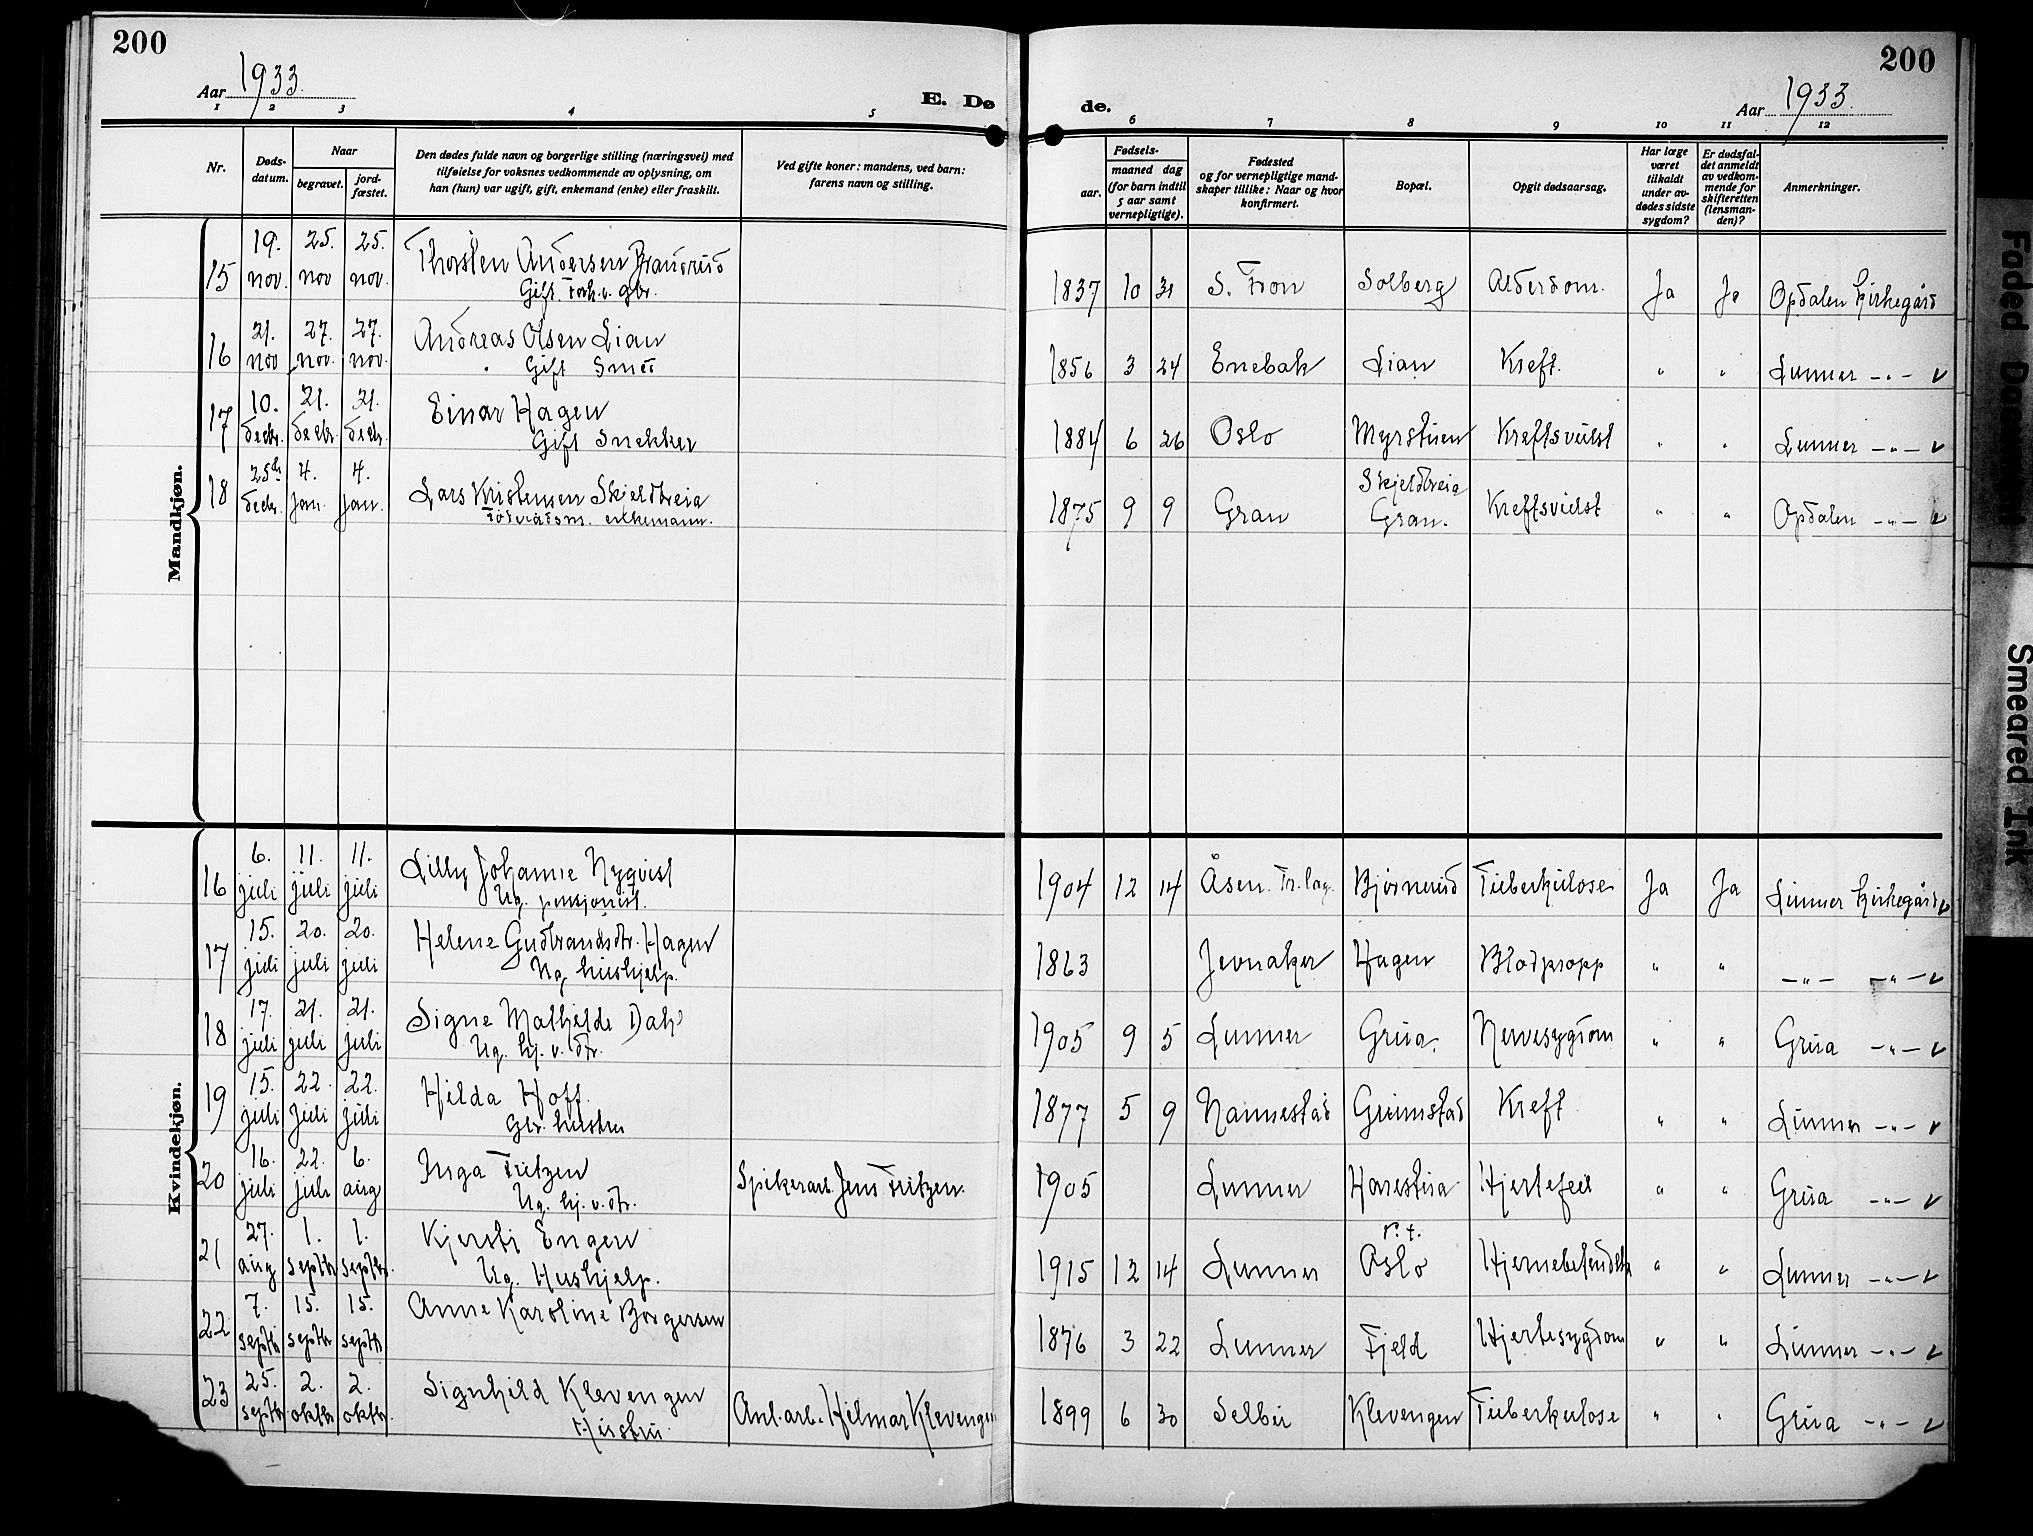 200
Aar 1933.
E. Dø
1 2 3 4 5
Nr.
Døds-
datum.
Naar
begravet.
jord-
fæstet.
Den dødes fulde navn og borgerlige stilling (næringsvei) med
tilføielse for voksnes vedkommende av oplysning, om
han (hun) var ugift, gift, enkemand (enke) eller fraskilt.
Ved gifte koner: mandens, ved barn:
farens navn og stilling.
de.
Aar 1933.
200
6 7 8 9 10 11 12
Fødsels-
aar.
maaned dag
(for barn indtil
5 aar samt
vernepligtige).
Fødested
og for vernepligtige mand-
skaper tillike: Naar og hvor
konfirmert.
Bopæl.
Opgit dødsaarsag.
Har læge
været
tilkaldt
under av-
dødes sidste
sygdom?
Er dødsfal-
det anmeldt
av vedkom-
mende for
skifteretten
(lensman-
den)?
Anmerkninger.
Mandkjøn.
15 19. nov. 25. nov 25. nov. Thorsten Andersen Brandrud
Gift Forh.v. gbr.
1837 10 31 S. Fron Solberg Alderdom. Ja Ja Opdalen kirkegård
16 21. nov 27. nov. 27. nov. Andreas Olsen Lian
Gift Smed
1856 3 24 Enebak Lian Kreft. " " Lunner -"- v
17 10. decbr. 21. decbr. 21. decbr. Einar Hagen
Gift Snekker
1884 6 26 Oslo Myrstuen Kreftsvulst " " Lunner -"- v
18 25de decbr. 4. jan. 4. jan. Lars Kristensen Skjeldbreia
Föderådsm. enkemann.
1875 9 9 Gran Skjeldbreia
Gran. Kreftsvulst " " Opdalen -"- v
Kvindekjøn.
16 6. juli 11. juli 11. juli Lilly Johanne Nyqvist
Ug. pensjonist.
1904 12 14 Åsen. Tr.lag. Bjørnerud Tuberkulose Ja Ja Lunner kirkegård v
17 15. juli 20. juli 20. juli Helene Gudbrandsdtr. Hagen
Ug hushjelp.
1863 Jevnaker Hagen Blodpropp " " -"- -"- v
18 17. juli 21. juli 21. juli Signe Mathilde Dahl
Ug. hj. v. dtr.
1905 9 5 Lunner Grua. Nervesygdom " " Grua -"- v
19 15. juli 22. juli 22. juli Hilda Hoff.
Gbr. hustru
1877 5 9 Nannestad Grimstad Kreft " " Lunner -"- v
20 16. juli 22. juli 6. aug Inga Fritzen
Ug. hj. v. dtr.
Spikerarb. Jens Fritzen.
1905 Lunner Harestua Hjertefeil " " Grua -"- v
21 27. aug 1. septbr 1. septbr. Kjersti Engen
Ug. Hushjelp.
1915 12 14 Lunner Oslo Hjernebetendelse " " Lunner -"- v
22 7. septbr 15. septbr 15. septbr Anne Karoline Borgersen
1876 3 22 Lunner Fjeld Hjertesygdom " " Lunner -"- v
23 25. septbr 2. oktbr 2. oktbr. Signhild Klevengen
Hustru
Anl.arb. Hilmar Klevengen
1899 6 30 Selbu Klevengen Tuberkulose " " Grua -"- v
Faded Document
Smeared Ink